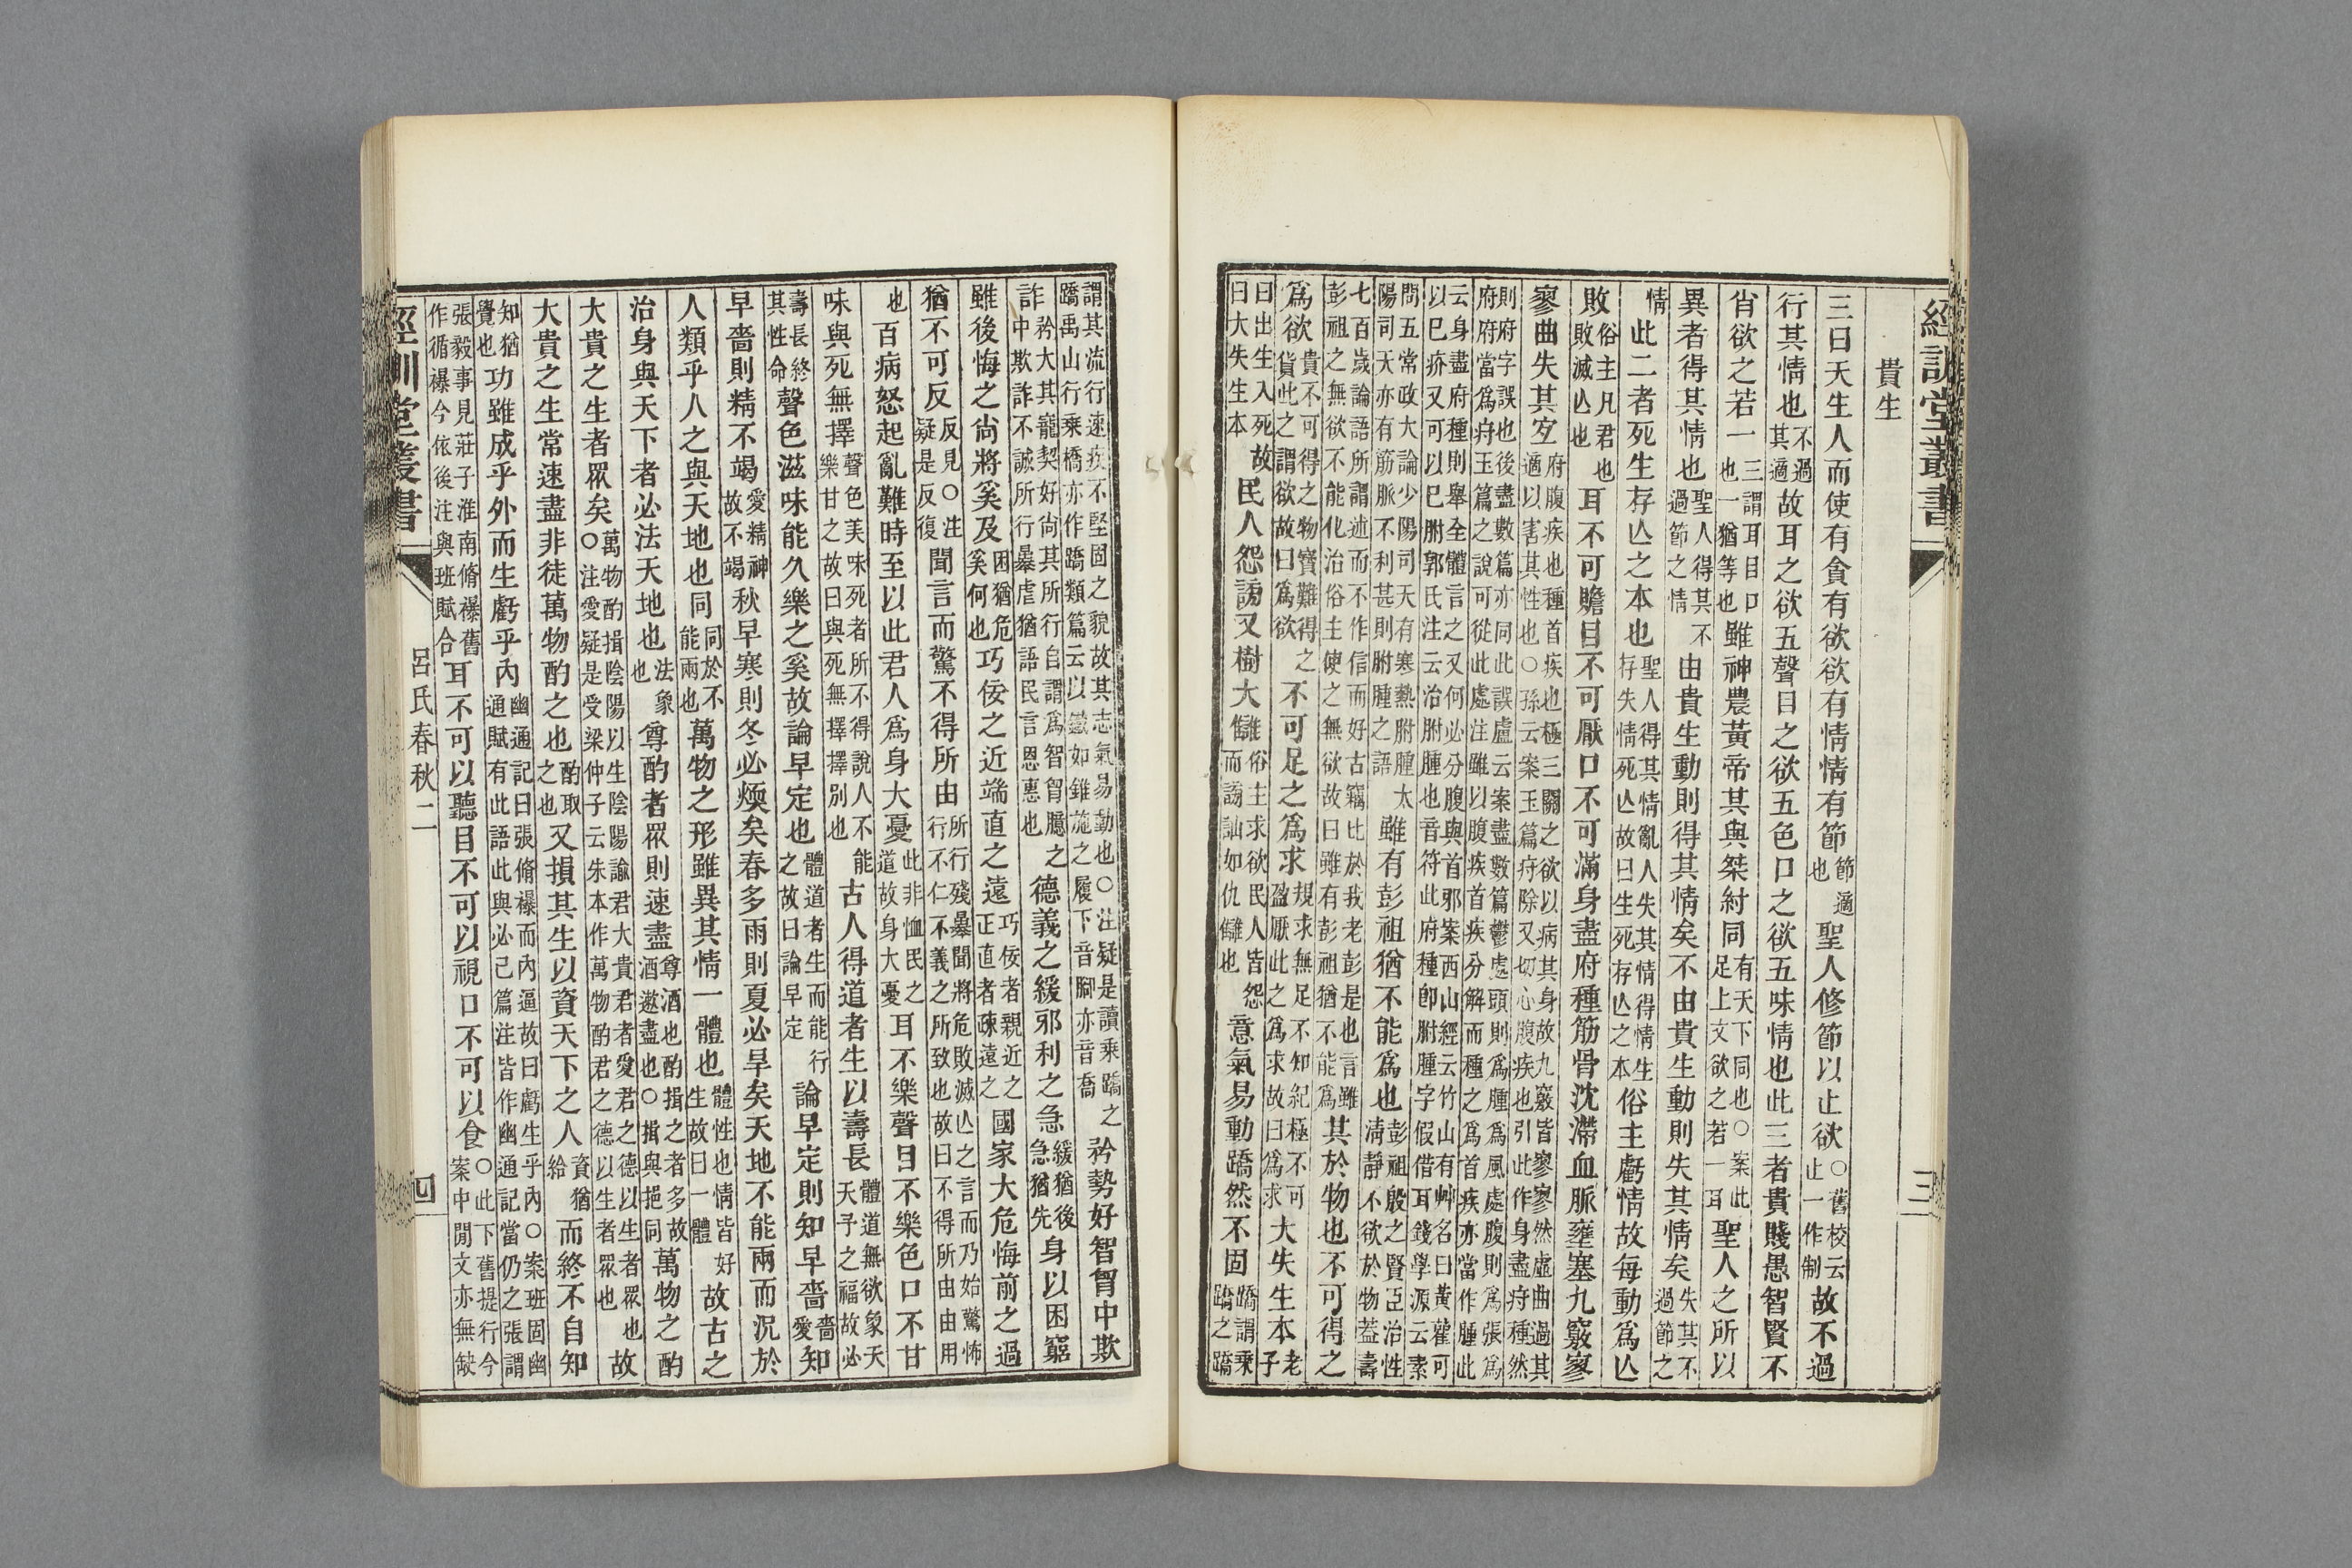 經訓堂叢書 三
貴生
三曰天生人而使有貪有欲欲有情情有節節適也聖人修節以止欲○舊校云止一作制故不過
行其情也不過其適故耳之欲五聲目之欲五色口之欲五味情也此三者貴賤愚智賢不
肖欲之若一三謂耳目口也一猶等也雖神農黃帝其與桀紂同有天下同也○案此足上文欲之若一耳聖人之所以
異者得其情也聖人得其不過節之情由貴生動則得其情矣不由貴生動則失其情矣失其不過節之
情此二者死生存亾之本也聖人得其情亂人失其情得情生存失情死亾故曰生死存亾之本俗主虧情故每動爲亾
敗俗主凡君也敗滅亾也耳不可贍目不可厭口不可滿身盡府種筋骨沈滯血脈壅塞九竅寥
寥曲失其宐府腹疾也種首疾也極三關之欲以病其身故九竅皆寥寥然虛曲過其適以害其性也○孫云案玉篇疛除又切心腹疾也引此作身盡疛種然
則府字誤也後盡數篇亦同此誤盧云案盡數篇鬱處頭則爲腫爲風處腹則爲張爲府府當爲疛玉篇之說可從此處注雖以腹疾首疾分解而種之爲首疾亦當作腫此
云身盡府種則舉全體言之又何必分腹與首邪案西山經云竹山有艸名曰黃雚可以已疥又可以已胕郭氏注云治胕腫也音符此府種卽胕腫字假借耳錢學源云素
問五常政大論少陽司天有寒熱胕腫太陽司天亦有筋脈不利甚則胕腫之語雖有彭祖猶不能爲也彭祖殷之賢臣治性清靜不欲於物葢壽
七百歲論語所謂述而不作信而好古竊比於我老彭是也言雖彭祖之無欲不能化治俗主使之無欲故曰雖有彭祖猶不能爲其於物也不可得之
爲欲貴不可得之物寶難得之貨此之謂欲故曰爲欲不可足之爲求規求無足不知紀極不可盈厭此之爲求故曰爲求大失生本老子
曰出生入死故曰大失生本民人怨謗又樹大讎俗主求欲民人皆怨而謗訕如仇讎也意氣易動蹻然不固蹻謂乘蹻之蹻
謂其流行速疾不堅固之貌故其志氣易動也○注疑是讀乘蹻之蹻禹山行乘橋亦作蹻類篇云以鐵如錐施之履下音腳亦音喬矜勢好智胷中欺
詐矜大其寵契好尚其所行自謂爲智胷臆之中欺詐不誠所行暴虐猶語民言恩惠也德義之緩邪利之急緩猶後急猶先身以困窮
雖後悔之尚將奚及困猶危奚何也巧佞之近端直之遠巧佞者親近之正直者疎遠之國家大危悔前之過
猶不可反反見○注疑是反復聞言而驚不得所由所行殘暴聞將危敗滅亾之言而乃始驚怖行不仁不義之所致也故曰不得所由由用
也百病怒起亂難時至以此君人爲身大憂此非恤民之道故身大憂耳不樂聲目不樂色口不甘
味與死無擇聲色美味死者所不得說人不能樂甘之故曰與死無擇擇別也古人得道者生以壽長體道無欲象天天予之福故必
壽長終其性命聲色滋味能久樂之奚故論早定也體道者生而能行之故曰論早定論早定則知早嗇嗇愛知
早嗇則精不竭愛精神故不竭秋早寒則冬必煥矣春多雨則夏必旱矣天地不能兩而況於
人類乎人之與天地也同同於不能兩也萬物之形雖異其情一體也體性也情皆好生故曰一體故古之
治身與天下者必法天地也法象也尊酌者眾則速盡尊酒也酌揖之者多故酒遬盡也○揖與挹同萬物之酌
大貴之生者眾矣萬物酌揖陰陽以生陰陽諭君大貴君者愛君之德以生者眾也○注愛疑是受梁仲子云朱本作萬物酌君之德以生者眾也故
大貴之生常速盡非徒萬物酌之也酌取之也又損其生以資天下之人資猶給而終不自知
知猶覺也功雖成乎外而生虧乎內幽通記曰張脩襮而內逼故曰虧生乎內○案班固幽通賦有此語此與必己篇注皆作幽通記當仍之張謂
張毅事見莊子淮南脩襮舊作循襮今依後注與班賦合耳不可以聽目不可以視口不可以食○此下舊提行今案中閒文亦無缺
經訓堂叢書 呂氏春秋二 四